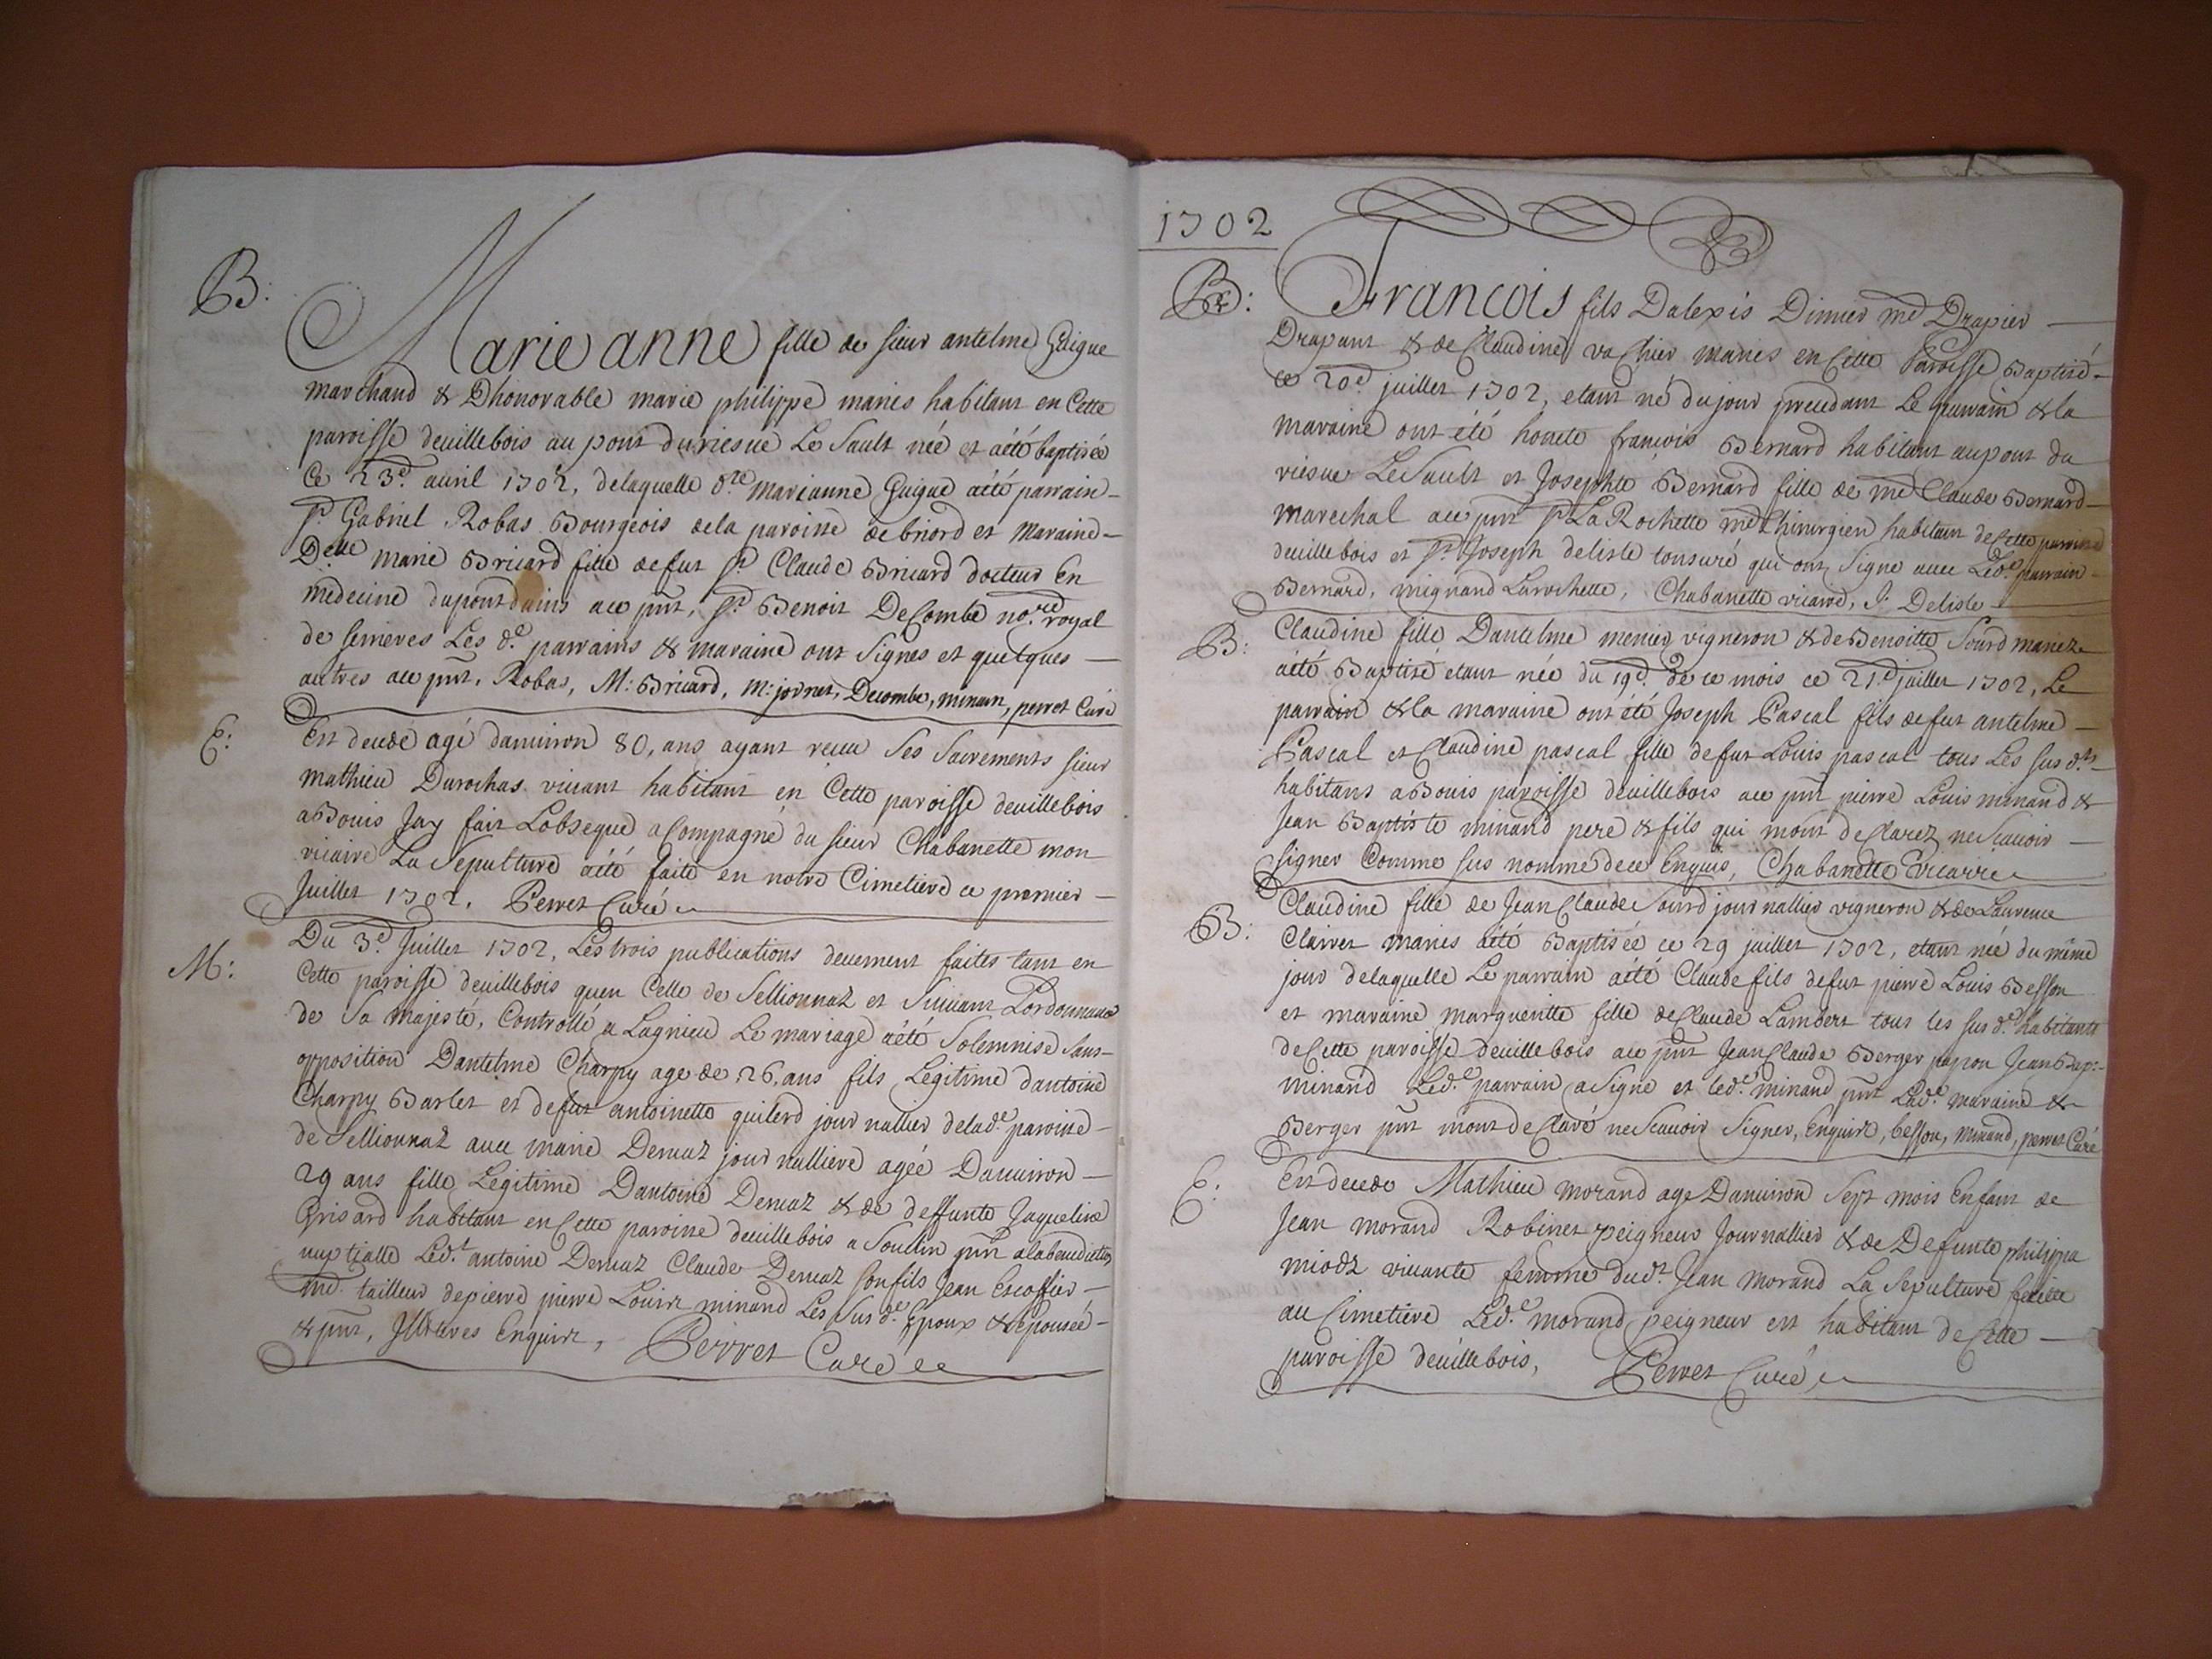 B:
Marie anne fille de sieur antelme Guigue
marchand & Dhonorable marie philippe maries habitant en Cette
paroisse deuillebois au pont du riesue Le Sault née et aété baptisée
Ce 23e. auril 1702, delaquelle d.te marianne Guigue aété parrain-
Sr. Gabriel Robas Bourgeois dela paroisse de briord et Maraine-
D.elle marie Bricard fille defut Sr. Claude Bricard docteur En
médecine dupont dains ace pnt, Sr. Benoit DeCombe no.re royal
de serrieres Les d.e parrains & maraine ont Signes et quelques —
autres ace pnt. Robas, M: Bricard, m: jornet, Decombe, minan, perret Curé
E:
Est decede agé danuiron 80, ans ayant receu Ses Sacrements sieur
mathieu Durochas viuant habitant en Cette paroisse deuillebois
a Bouis Jay fait Lobseque acompagné du sieur Chabanette mon
vicaire La Sepulture aété faite en notre Cimetiere ce premier —
Juillet 1702. Perret Curé
M:
Du 3e. Juillet 1702, Les trois publications deuement faites tant en
Cette paroisse deuillebois quen Celle de Sellionnaz et Suiuant Lordonnance
de Sa majesté, Controllé a Lagnieu Le mariage aété Solemnisé Sans-
opposition Dantelme Charpy age de 26, ans fils Legitime dantoine
Charpy Barlet et defut antoinette quilerd journallier delad.e paroisse-
de Sellionnaz auec marie Deruaz journalliere agée Danuiron —
29 ans fille Legitime Dantoine Deruaz & de deffunte Jaqueline
Grisard habitant en Cette paroisse deuillebois a Soudin pnt alabenediction
nuptialle Led.t antoine Deruaz Claude Deruaz son fils Jean Escoffier —
md. tailleur depierre pierre Louis minand Les Sus d.e Epoux & épousée-
& pnt, Illiteres Enquis, Perret Curé
1702
B:
Francois fils Dalexis Dimier md Drapier —
Drapant & de Claudine vachier maries en Cette Paroisse Baptisé-
ce 20e juillet 1702, etant né du jour precedant Le parrain & la
maraine ont été honete francois Bernard habitant aupont du
riesue Le Sault et Josephte Bernard fille de md Claude Bernard-
marechal ace pnt Sr. La Rochette md Chirurgien habitant de Cette paroisse
deuillebois et Sr. Joseph delisle tonsuré qui ont Signe auec Led.e parrain-
Bernard, mignand Larochette, Chabanette vicaire, J. Delisle
B:
Claudine fille Dantelme menier vigneron & de Benoitte Sourd mariez
aété Baptisé etant née du 19e. de ce mois ce 21e juillet 1702, Le
parrain & la maraine ont été Joseph Pascal fils defut antelme —
Pascal et Claudine pascal fille defut Louis pascal tous Les sus d.ts
habitans a Bouis paroisse deuillebois ace pnt pierre Louis minand &
Jean Baptiste minand pere & fils qui mont deClarez ne Scauoir —
Signer Comme sus nomme dece Enquis, Chabanette Vicaire
B:
Claudine fille de Jean Claude Sourd journallier vigneron & de Laurence
Clairet maries aété Baptisée ce 29 juillet 1702, etant née du même
jour delaquelle Le parrain aété Claude fils defut pierre Louis Besson
et maraine marguerite fille de Claude Lambert tous les sus d.e habitants
de Cette paroisse deuillebois ace pnt Jean Claude Berger papon Jean Bap:-
minand Led.e parrain a Signe et led.e minand pnt Lad.e maraine &
Berger pnt mont deClaré ne Scauoir Signer, Enquis, besson, minand, perret Curé
E:
Est decede Mathieu morand age Danuiron Sept mois Enfant de
Jean morand Robinet peigneur Journallier & de Defunte philippa
miodz viuante femme dud.t Jean Morand La Sepulture faite
au Cimetiere Led.e morand peigneur est habitant de Cette —
paroisse deuillebois, Perret Curé,